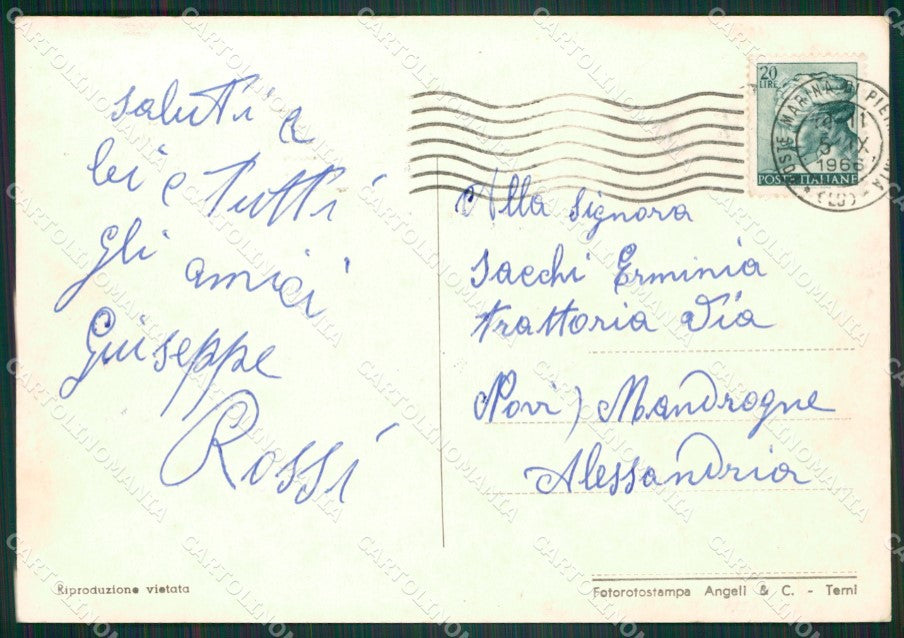 saluti a
lei e tutti
gli amici
Giuseppe
Rossi
20
LIRE
POSTE ITALIANE
MARINA DI PIE
1966
Alla signora
Sacchi Erminia
trattoria Via
Novi) Mandrogne
Alessandria
Riproduzione vietata
Fotorotostampa Angeli & C. - Terni
CARTOLINOMANIA